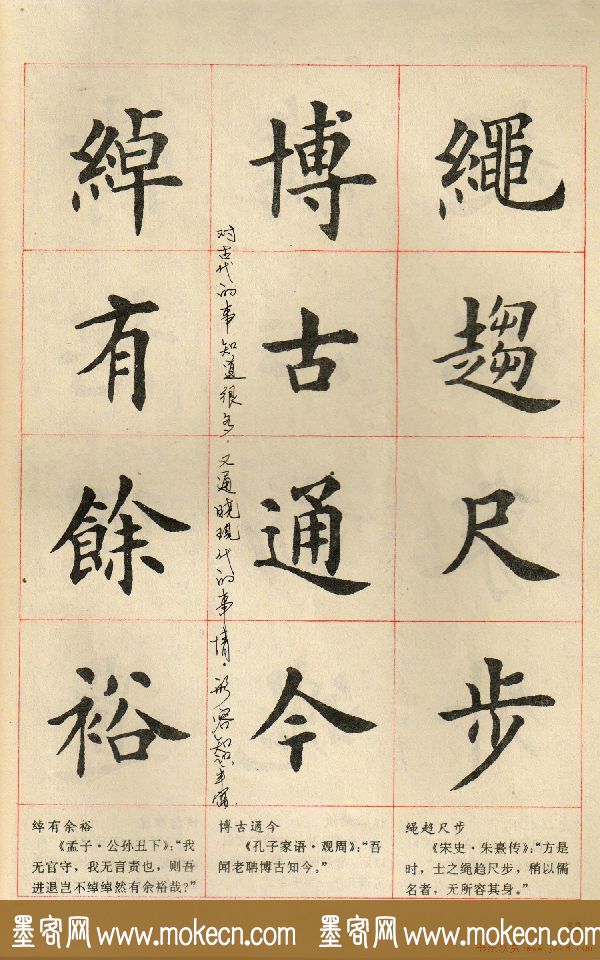 繩趨尺步
博古通今
对古代的事知道很多，又通晓现代的事情。形容知识丰富
綽有餘裕
绳趋尺步
《宋史·朱熹传》：“方是
时，士之绳趋尺步，稍以儒
名者，无所容其身。”
博古通今
《孔子家语·观周》：“吾
闻老聃博古知今。”
绰有余裕
《孟子·公孙丑下》：“我
无官守，我无言责也，则吾
进退岂不绰绰然有余裕哉？”
墨客网 www.mokecn.com 墨客网 www.mokecn.com